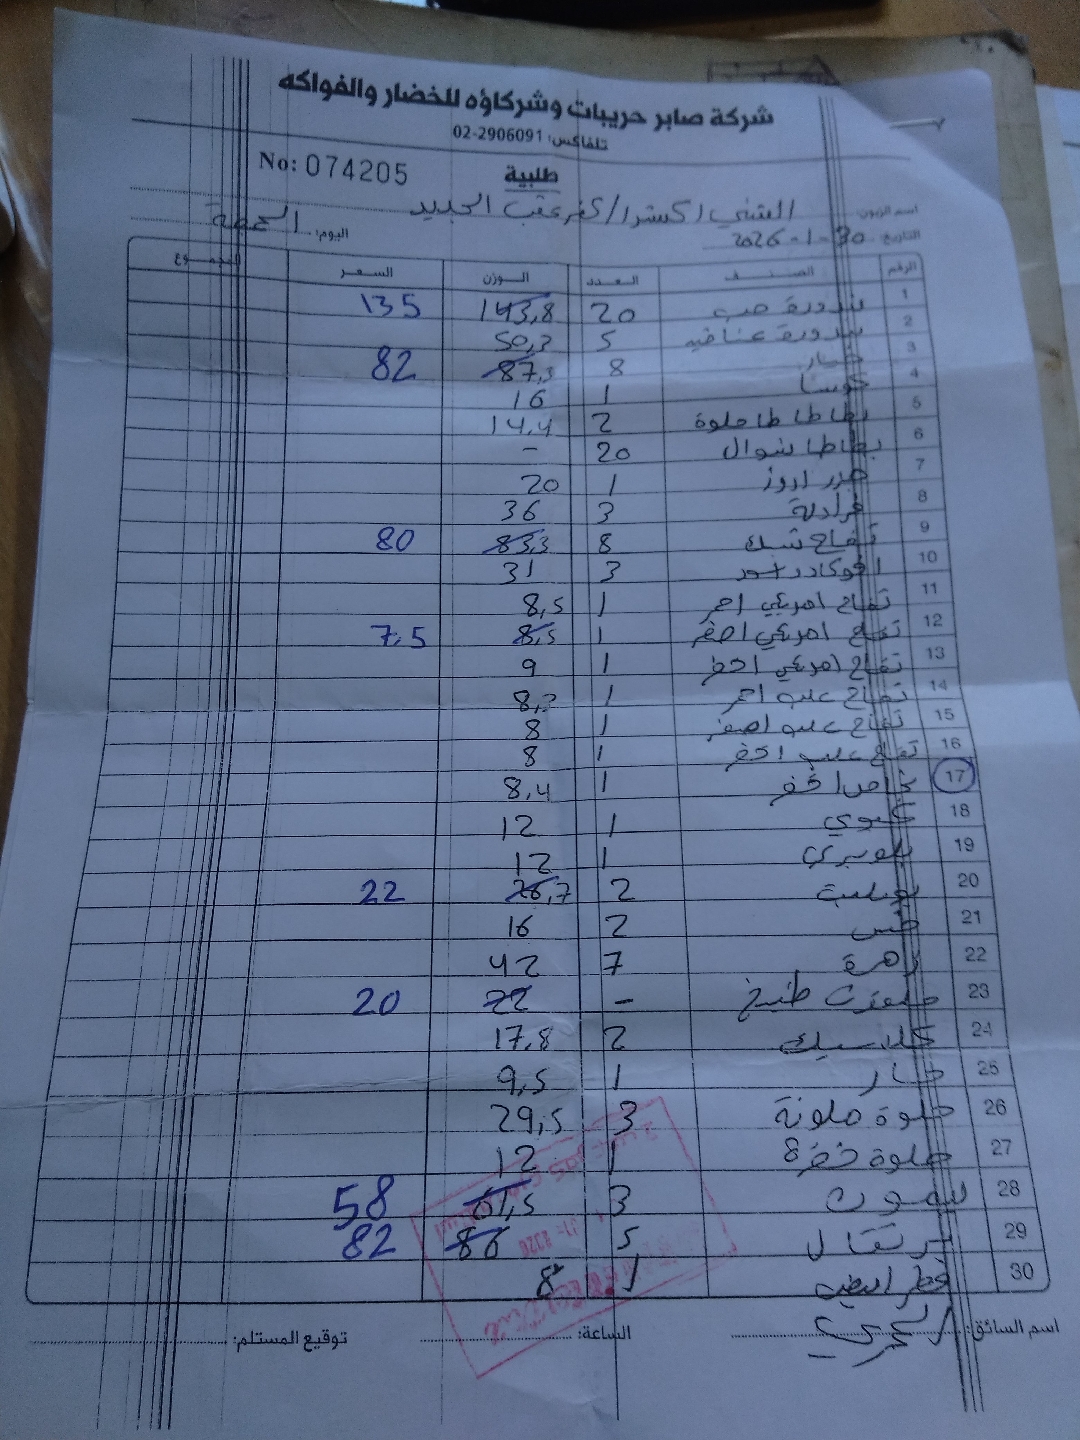 شركة صابر حريبات وشركاؤه للخضار والفواكه
تلفاكس: 02-2906091
No: 074205
طلبية
اسم الزبون: الشني اكسترا / كفر عقب الجديد
اليوم: الجمعة
التاريخ: 30-1-2026
الرقم الصنف العدد الوزن السعر المجموع
1 بندورة حب 20 143,8 135
2 بندورة عناقيد 5 50,3
3 خيار 8 87,3 82
4 كوسا 1 16
5 بطاطا حلوة 2 14,4
6 بطاطا شوال 20 -
7 جزر 1 20
8 3 36
9 تفاح 8 83,3 80
10 افوكادو 3 31
11 تفاح امريكي احمر 1 8,5
12 تفاح امريكي اصفر 1 8,5 7.5
13 تفاح امريكي اخضر 1 9
14 تفاح علب احمر 1
15 تفاح علب اصفر 1 8
16 تفاح علب اخضر 1 8
17 نجاص اخضر 1 8,4
18 كيوي 1 12
19 بلوبيري 1 12
20 2 26,7 22
21 خس 2 16
22 زهرة 7 42
23 طبيخ - 22 20
24 كلاسيك 2 17,8
25 حار 1 9,5
26 حلوة ملونة 3 29,5
27 حلوة خضرة 1 12
28 ليمون 3 61,5 58
29 برتقال 5 86 82
30 فطر ابيض 1 8
اسم السائق:
الساعة:
توقيع المستلم: